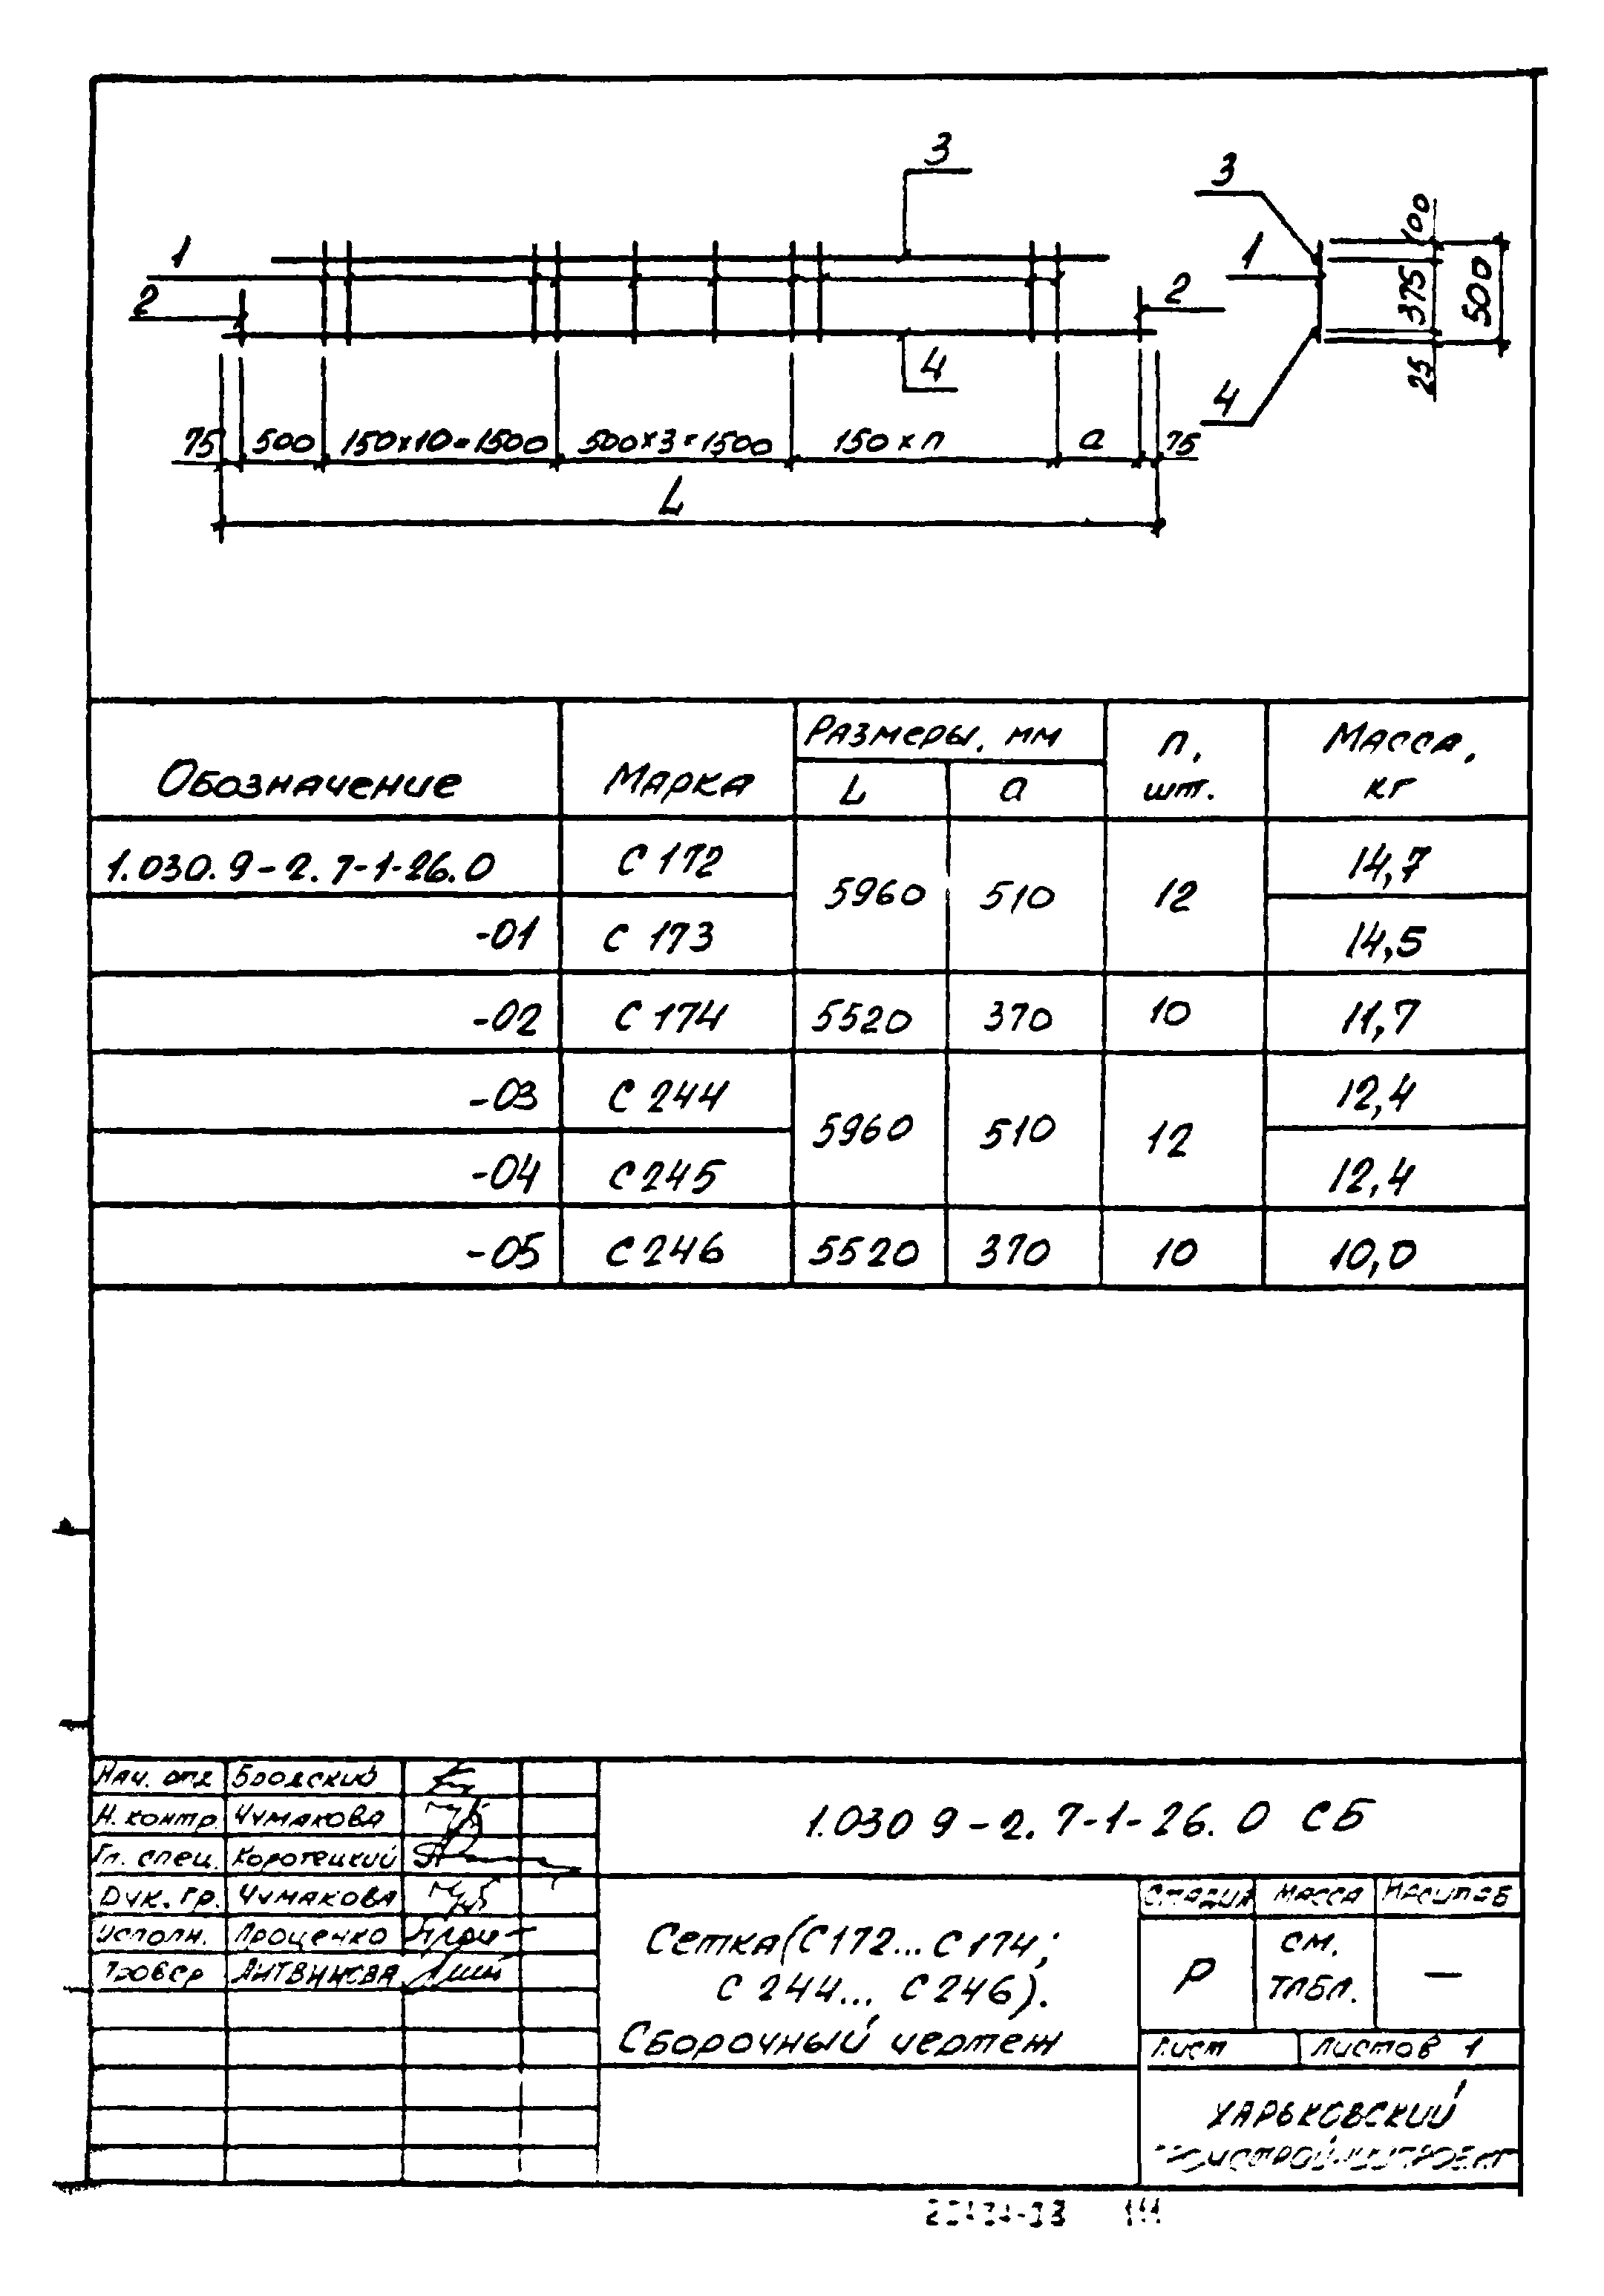 3
3
1
2
2
1
4
4
100
375
25
500
75 500 150х10=1500 500х3=1500 150 х n a 75
L
Обозначение Марка Размеры, мм n, шт. Масса, кг
L a
1.030.9-2.7-1-26.0 С 172 5960 510 12 14,7
-01 С 173 14,5
-02 С 174 5520 370 10 11,7
-03 С 244 5960 510 12 12,4
-04 С 245 12,4
-05 С 246 5520 370 10 10,0
Нач. отд Бродский
Н. контр. Чумакова
Гл. спец. Коротецкий
Рук. гр. Чумакова
Исполн. Проценко
Провер Литвинова
1.030 9-2.7-1-26.0 СБ
Сетка (С172... С174;
С 244... С 246).
Сборочный чертеж
Стадия Масса Масштаб
Р см. табл. —
Лист Листов 1
Харьковский